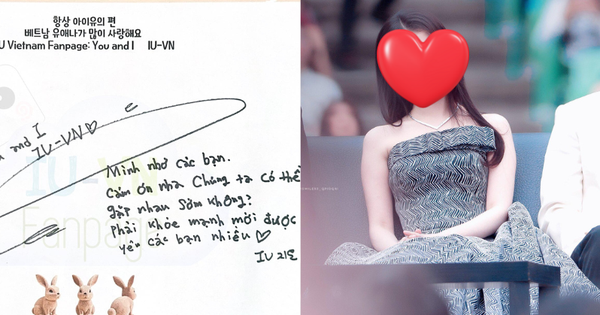 항상 아이유의 편
베트남 유애나가 많이 사랑해요
U Vietnam Fanpage: You and I IU-VN
and I
IU-VN♡
IU-VN
Fanpage
Mình nhớ các bạn.
cảm ơn nha Chúng ta có thể
gặp nhau sớm không?
Phải khỏe mạnh mới được
yêu các bạn nhiều ♡
IU 리도